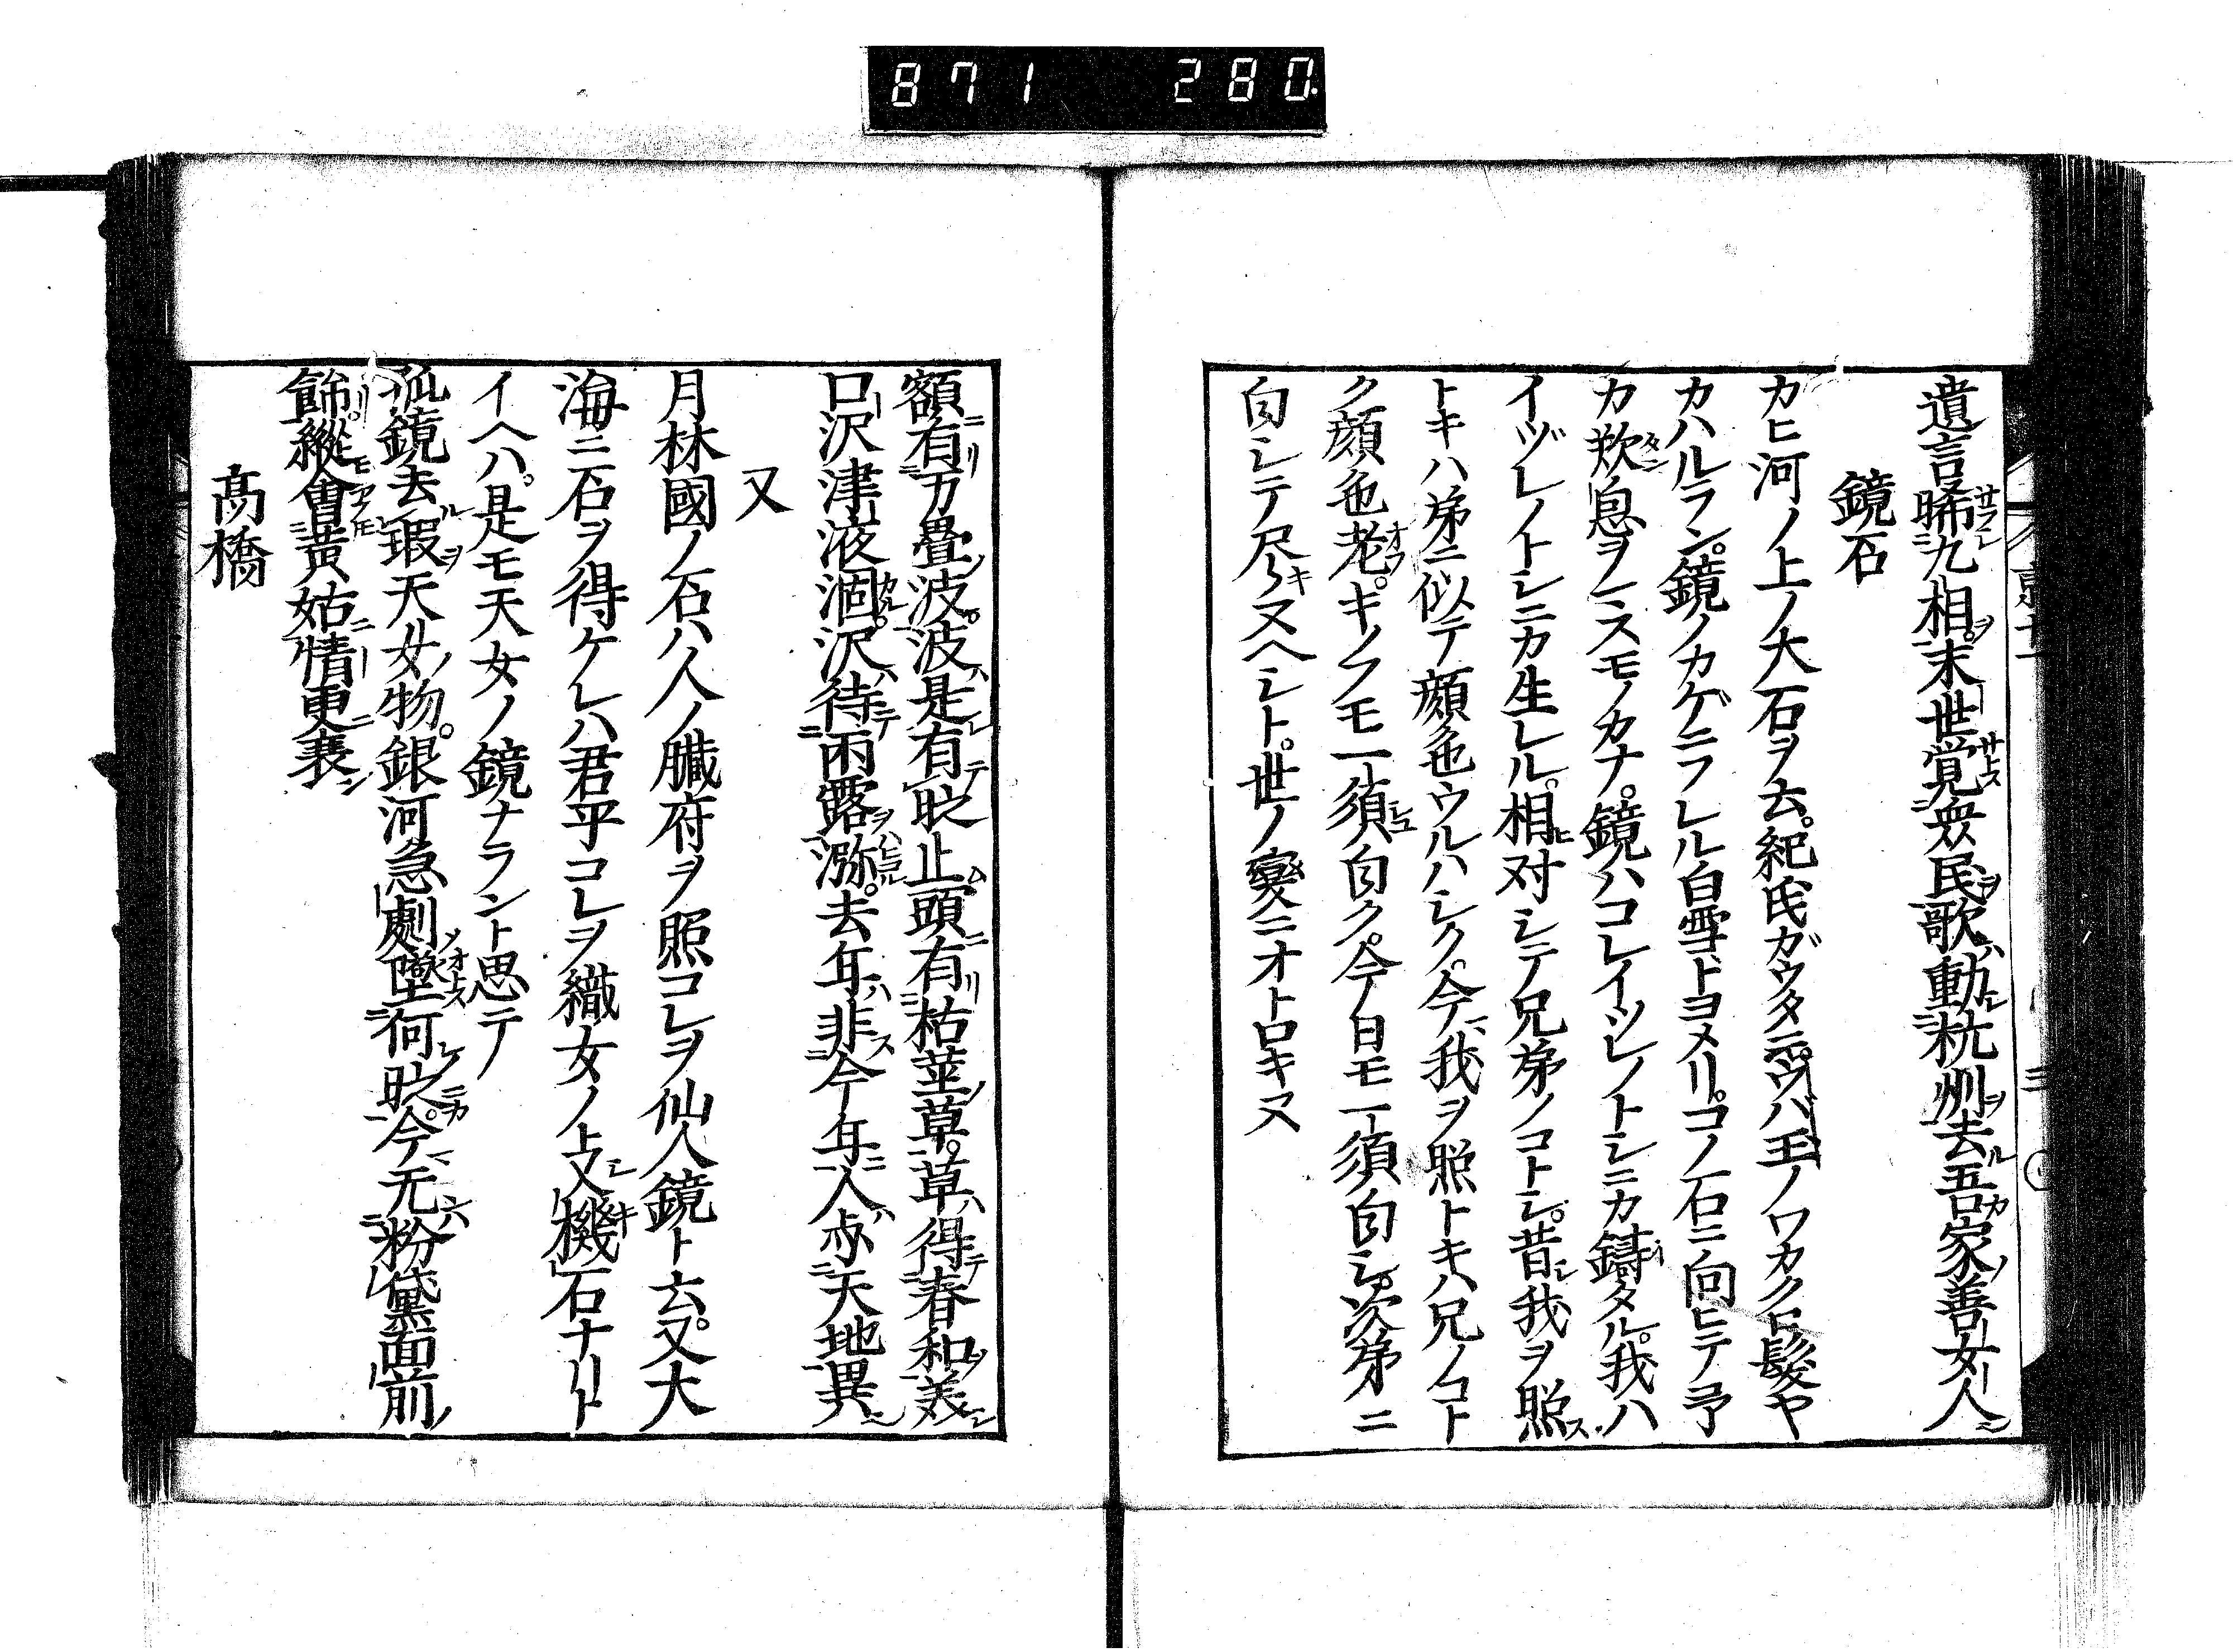 871 280.
遺言晞九相。末世覚衆民歌動杭州去吾家善女人
鏡石
カヒ河ノ上ノ大石ヲ云。紀氏ガウタニ。ウバ玉ノワカクロ髪ヤ
カハルラン。鏡ノカゲニフレル白雪トヨメリ。コノ石ニ向ヒテ予
カ歎息ヲスモノカナ。鏡ハコレイツレノトシニカ鋳タル。我ハ
イヅレノトシニカ生レル。相対シテ兄弟ノコトシ。昔我ヲ照ス
トキハ弟ニ似テ顔色ウルハシク。今我ヲ照トキハ兄ノコト
ク顔色老。キノフモ一須白ク。今ノ日モ一須白シ。次第ニ
白シテ尽ヌヘシト。世ノ変ニオトロキヌ
額有万畳波。波是有時止頭有枯莖草。草得春和美
口沢津液涸。沢待雨露瀰。去年非今年人亦天地異
又
月林國ノ石ハ人ノ臓府ヲ照コレヲ仙人鏡ト云。又大
海ニ石ヲ得ケレハ君平コレヲ織女ノ支機石ナリト
イヘハ。是モ天女ノ鏡ナラント思テ
孤鏡去瑕天女物。銀河急劇墜何時今无粉黛面前
飾。縱會黃姑情更衰
髙橋